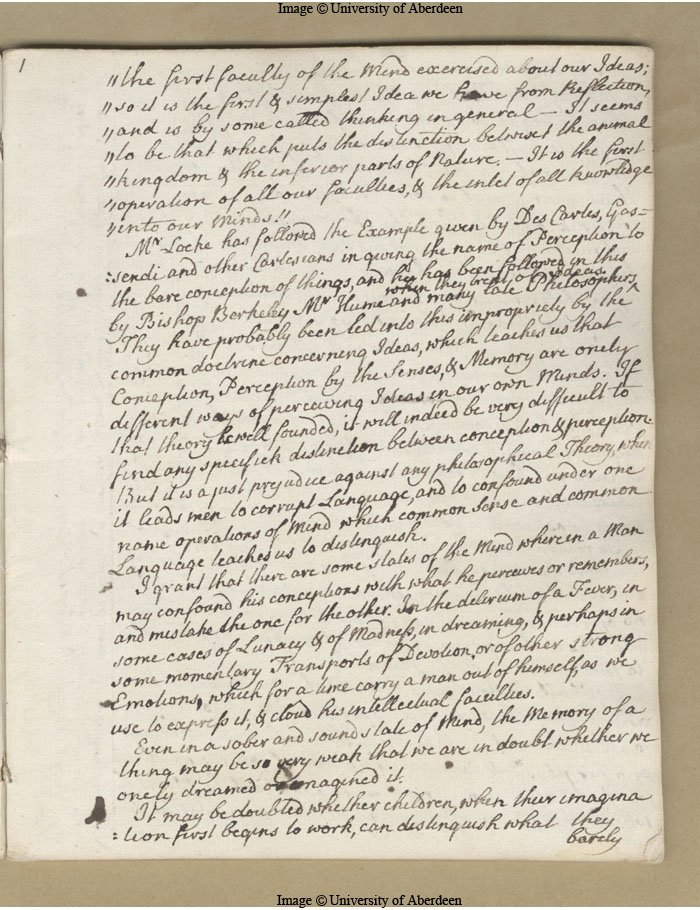 Image © University of Aberdeen
1
"the first faculty of the Mind exercised about our Ideas;
"so it is the first & simplest Idea we have from Reflection,
"and is by some called thinking in general — It seems
"to be that which puts the distinction betwixt the animal
"kingdom & the inferior parts of Nature. — It is the first
"operation of all our faculties, & the inlet of all knowledge
"into our Minds."
Mr Locke has followed the Example given by Des Cartes, Gas=
:sendi and other Cartesians in giving the name of Perception to
the bare conception of things, and he has been followed in this
by Bishop Berkeley Mr Hume and many late Philosophers
when they treat of Ideas.
They have probably been led into this impropriety by the
common doctrine concerning Ideas, which teaches us that
Conception, Perception by the Senses, & Memory are onely
different ways of perceiving Ideas in our own Minds. If
that theory be well founded, it will indeed be very difficult to
find any specifick distinction between conception & perception.
But it is a just prejudice against any philosophical Theory, when
it leads men to corrupt Language, and to confound under one
name operations of Mind which common Sense and common
Language teaches us to distinguish.
I grant that there are some states of the Mind where in a Man
may confound his conceptions with what he perceives or remembers,
and mistake the one for the other. In the delirium of a Fever, in
some cases of Lunacy & of Madness, in dreaming, & perhaps in
some momentary Transports of Devotion, or of other strong
Emotions, which for a time carry a man out of himself, as we
use to express it, & cloud his intellectual faculties.
Even in a sober and sound state of Mind, the Memory of a
thing may be so very weak that we are in doubt whether we
onely dreamed or imagined it.
It may be doubted whether children, when their imagina
:tion first begins to work, can distinguish what they
barely
Image © University of Aberdeen